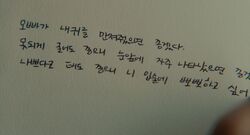 오빠가 내 귀를 만져줬으면 좋겠다.
못되게 굴어도 좋으니 눈앞에 자주 나타났으면 좋겠
나쁘다고 해도 좋으니 니 입술에 뽀뽀하고 싶어